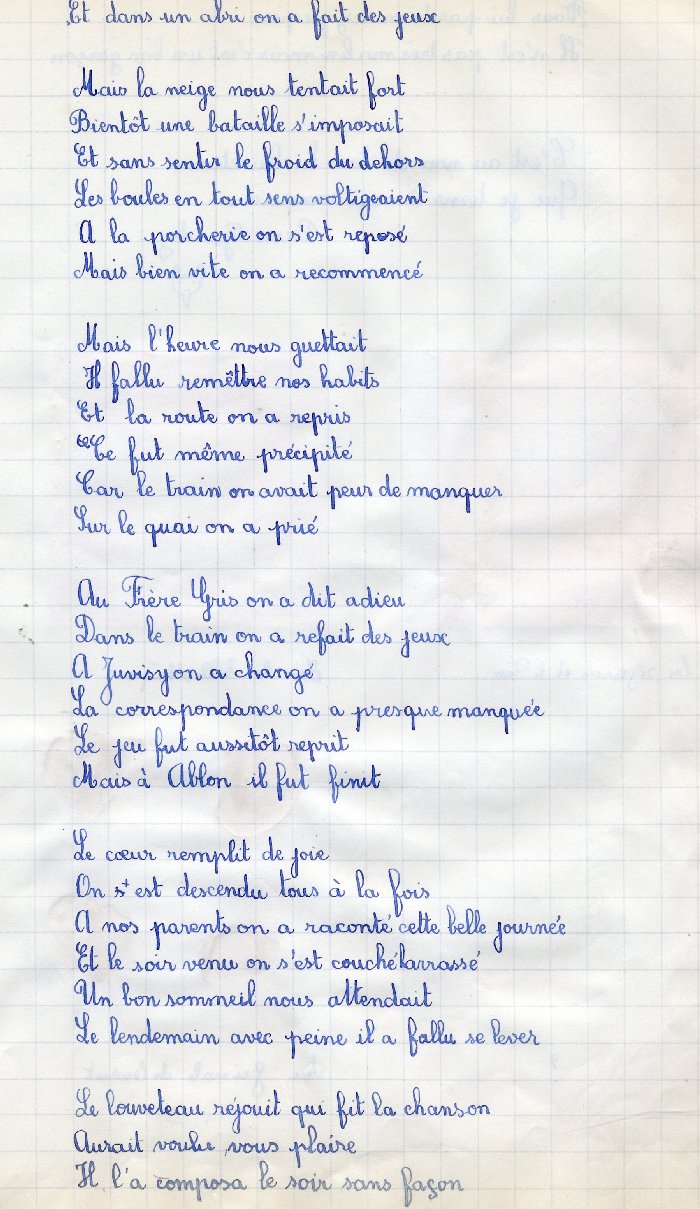 Et dans un abri on a fait des jeux
Mais la neige nous tentait fort
Bientôt une bataille s'imposait
Et sans sentir le froid du dehors
Les boules en tout sens voltigeaient
A la porcherie on s'est reposé
Mais bien vite on a recommencé
Mais l'heure nous guettait
Il fallu remêttre nos habits
Et la route on a repris
Ce fut même précipité
Car le train on avait peur de manquer
Sur le quai on a prié
Au Frère Gris on a dit adieu
Dans le train on a refait des jeux
A Juvisy on a changé
La correspondance on a presque manquée
Le jeu fut aussitôt reprit
Mais à Ablon il fut finit
Le cœur remplit de joie
On est descendu tous à la fois
A nos parents on a raconté cette belle journée
Et le soir venu on s'est couché larrassé
Un bon sommeil nous attendait
Le lendemain avec peine il a fallu se lever
Le louveteau réjouit qui fit la chanson
Aurait voulu vous plaire
Il l'a composa le soir sans façon